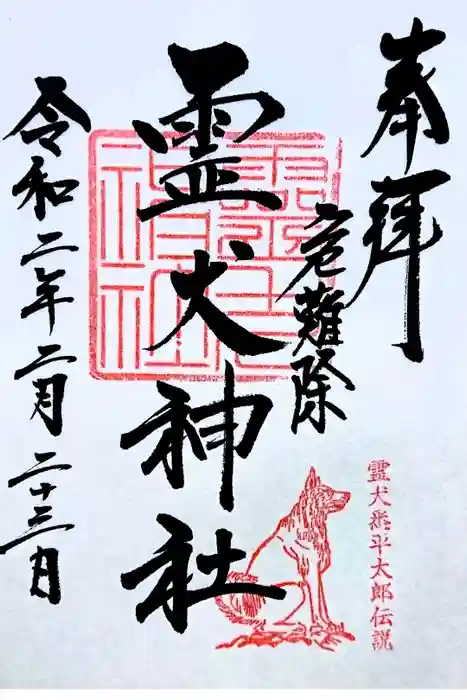 奉拝
危難除
霊犬神社
令和二年二月二十三日
霊犬神社
霊犬悉平太郎伝説